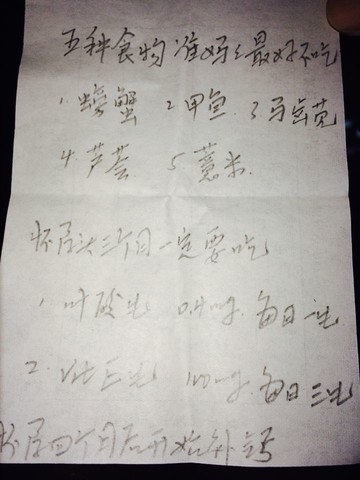 五种食物准妈妈最好不吃
1.螃蟹 2.甲鱼 3.马齿苋
4.芦荟 5.薏米
怀孕头三个月一定要吃
1.叶酸片 0.4mg 每日一片
2. VitE片 100mg 每日三片
怀孕四个月后开始补钙